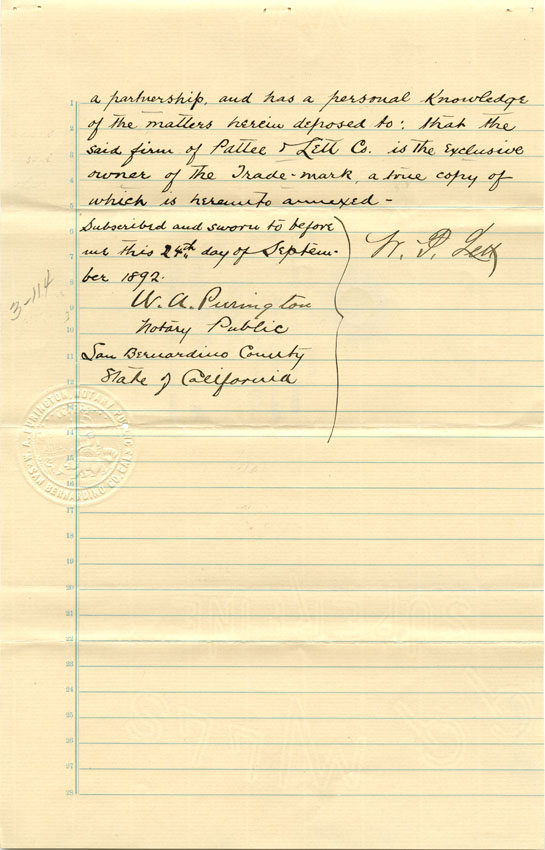 a partnership, and has a personal Knowledge
of the matters herein deposed to; that the
said firm of Pattee & Lett Co. is the Exclusive
owner of the Trade-mark, a true copy of
which is hereunto annexed -
Subscribed and sworn to before
me this 24th day of Septem-
ber 1892.
W. P. Lett
W. A. Purington
Notary Public
San Bernardino County
State of California
3-114
W. A. PURINGTON, NOTARY PUBLIC
SAN BERNARDINO CO. CAL.
1
2
3
4
5
6
7
8
9
10
11
12
14
15
16
17
18
19
20
21
22
23
24
25
26
27
28